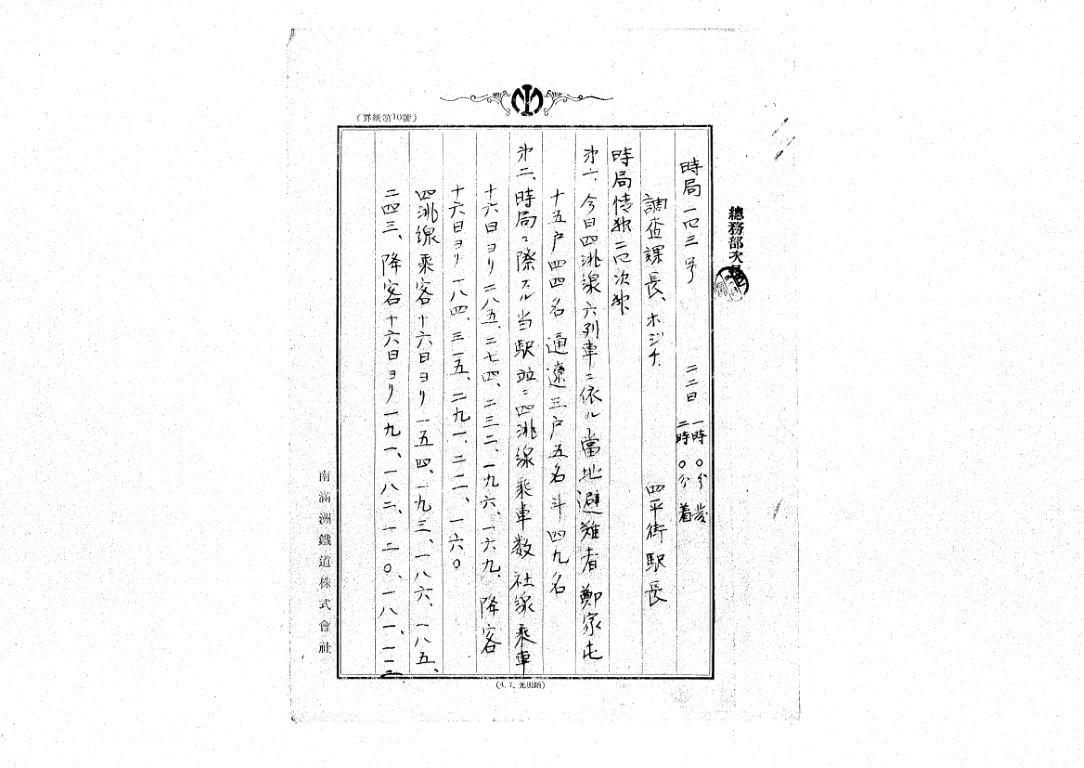 (罫紙第10號)
總務部次長
時局一四三号 二二日 一時〇分発
二時〇分着
調査課長、ホジチ. 四平街駅長
時局情報二四次報
第一、今日四洮線六列車ニ依ル當地避難者 鄭家屯
十五户四四名 通遼三户五名 計四九名
第二、時局ニ際スル当駅並ニ四洮線乗車数 社線乗車
十六日ヨリ二八五、二七四、二三二、一九六、一六九、降客
十六日ヨリ一八四、三一五、二九一、二二一、一六〇
四洮線乗客十六日ヨリ一五四、一九三、一八六、一八五、
二四三、降客十六日ヨリ一九一、一八二、一二〇、一八一、
南滿洲鐵道株式會社